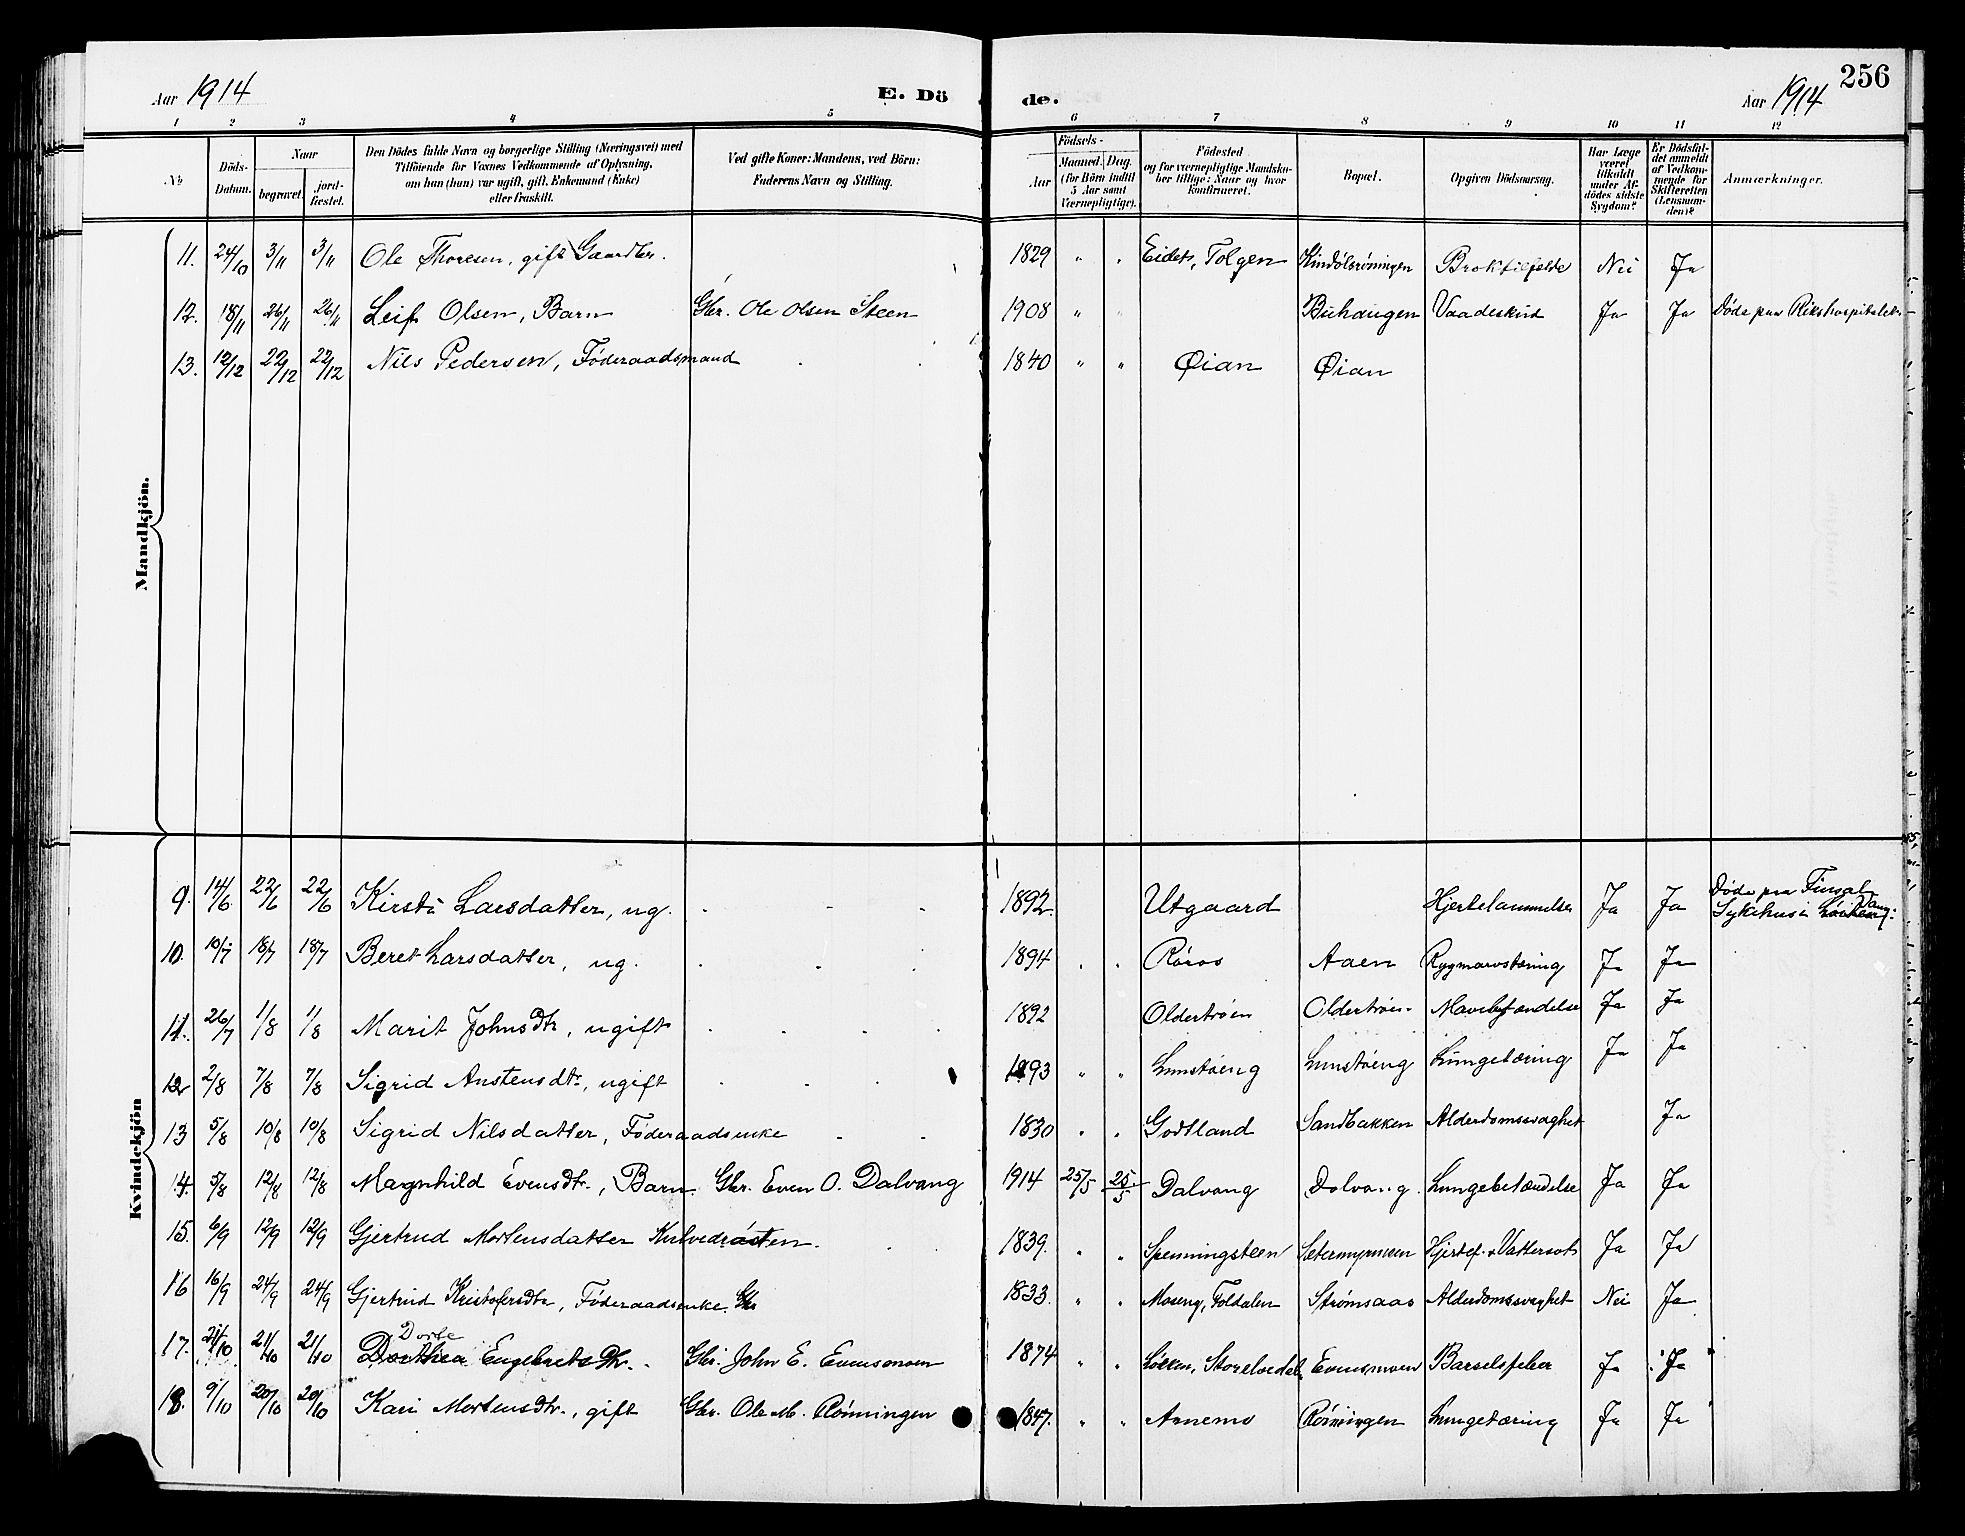 256
Aar 1914 E. Dö de. Aar 1914
1 2 3 4 5 6 7 8 9 10 11 12
No Döds-Datum. Naar begravet. jord-fæstet. Den Dödes fulde Navn og borgerlige Stilling (Næringsvei) med Tilföiende for Voxnes Vedkommende af Oplysning, om han (hun) var ugift, gift, Enkemand (Enke) eller fraskilt. Ved gifte Koner: Mandens, ved Börn: Faderens Navn og Stilling. Födsels- Aar Maaned. Dag. (for Börn indtil 5 Aar samt Værnepligtige). Födested og for værnepligtige Mandska-ber tillige: Naar og hvor konfirmeret. Bopæl. Opgiven Dödsaarsag. Har Læge været tilkaldt under Af-dödes sidste Sygdom? Er Dödsfal-det anmeldt af Vedkom-mende for Skifteretten (Lensman-den)? Anmærkninger.
Mandkjön.
11. 24/10 3/11 3/11 Ole Thoresen, gift Gaardbr. 1829 " " Eidet, Tolgen Nei Ja
12. 18/11 26/11 26/11 Leif Olsen, Barn Gbr. Ole Olsen Steen 1908 " " Buhaugen Vaadeskud Ja Ja Døde paa Rikshospitalet
13. 12/12 22/12 22/12 Nils Pedersen, Føderaadsmand 1840 " " Øian Øian
Kvindekjön
9. 14/6 22/6 22/6 Kirsti Larsdatter, ug. 1892. Utgaard Hjertelammelse Ja Ja Døde paa Finsal
Sykehus i Løiten Vang.
10. 10/7 18/7 18/7 Beret Larsdatter, ug. 1894 Røros Aaen Rygmarvstæring Ja Ja
11. 26/7 1/8 1/8 Marit Johnsdtr, ugift 1892 Oldertrøen Oldertrøen Mavebetændelse Ja Ja
12 2/8 7/8 7/8 Sigrid Anstensdtr, ugift 1893 " " Lunstøeng Lunstøeng Lungetæring Ja Ja
13 5/8 10/8 10/8 Sigrid Nilsdatter, Føderaadsenke 1830 " " Godtland Sandbakken Alderdomssvaghet Ja
14. 5/8 12/8 12/8 Magnhild Evensdtr., Barn. Gbr. Even O. Dalvang 1914 25/5 25/5 Dalvang Dalvang. Lungebetændelse Ja Ja
15. 6/9 12/9 12/9 Gjertrud Mortensdatter 1839. " " Spenningsteen Sætermymoen Hjertef. Vattersot Ja Ja
16 16/9 24/9 24/9 Gjertrud Kristofersdtr, Føderaadsenke. Gbr 1833. " " Moseng, Foldalen Strømsaas Alderdomssvaghet Nei Ja
Dorte
17. 21/10 21/10 Dorthea Engebretsdtr. Gbr. John E. Evensmoen 1874 " " Løkken, Storelvedal Evensmoen Barselfeber Ja Ja
18. 9/10 20/10 20/10 Kari Mortensdtr., gift Gbr. Ole M. Rønningen 1847. " " Arnemo Rønningen Lungetæring Ja Ja